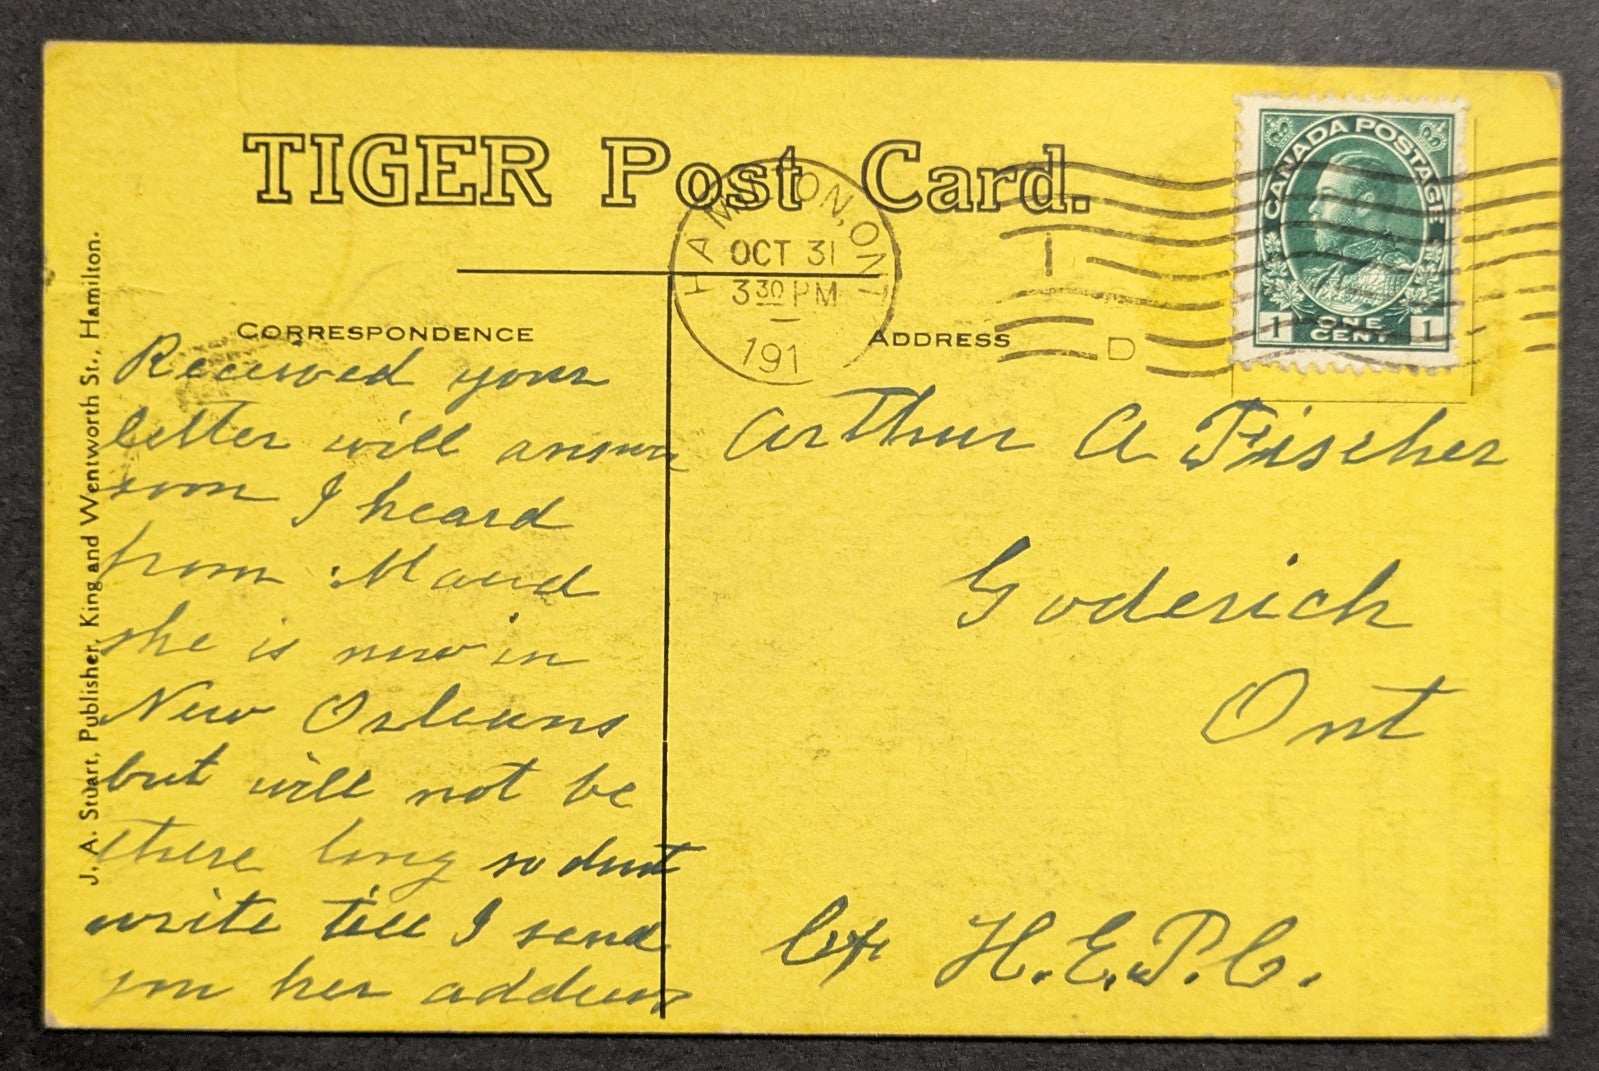 TIGER Post Card.
HAMILTON, ONT
OCT 31
3 30 PM
191
I
D
CANADA POSTAGE
1 ONE CENT 1
CORRESPONDENCE
ADDRESS
J. A. Stuart, Publisher, King and Wentworth St., Hamilton.
Received your
letter will answer
soon I heard
from Maud
she is now in
New Orleans
but will not be
there long so dont
write till I send
you her address
Arthur A Fischer
Goderich
Ont
H.E.P.C.